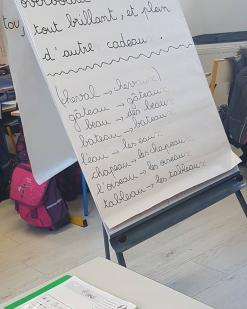 tout brillant, et plein
d'autre cadeau.
(cheval → chevaux)
gâteau → gâteaux
beau → des beaux
bateau → bateaux
l'eau → les eaux
chapeau → les chapeaux
l'oiseau → les oiseaux
tableau → les tableaux